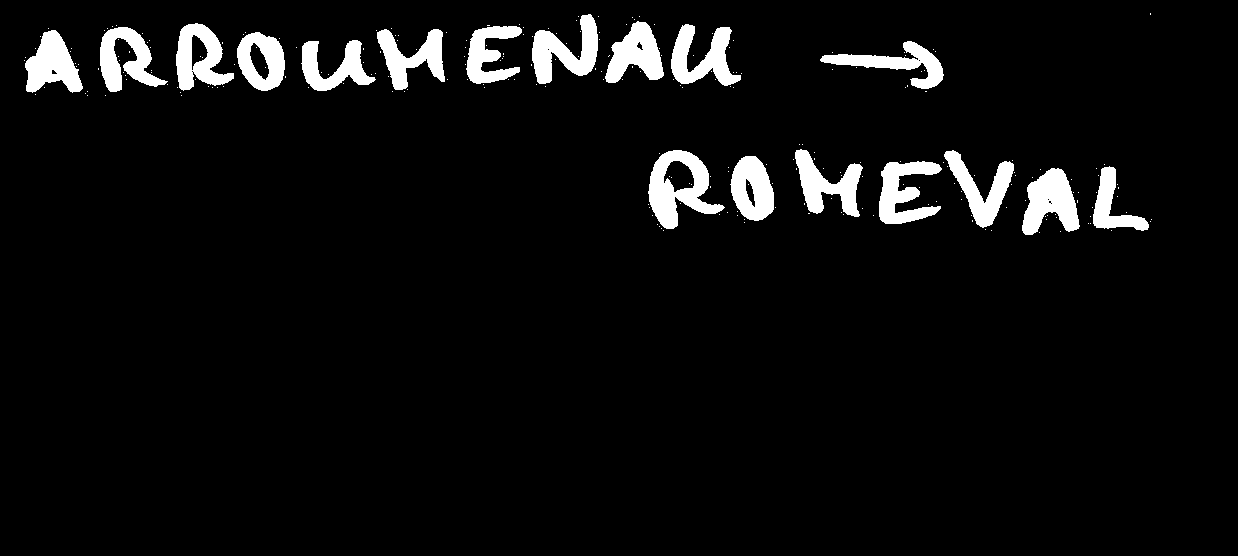 ARROUMENAU →
ROMEVAL